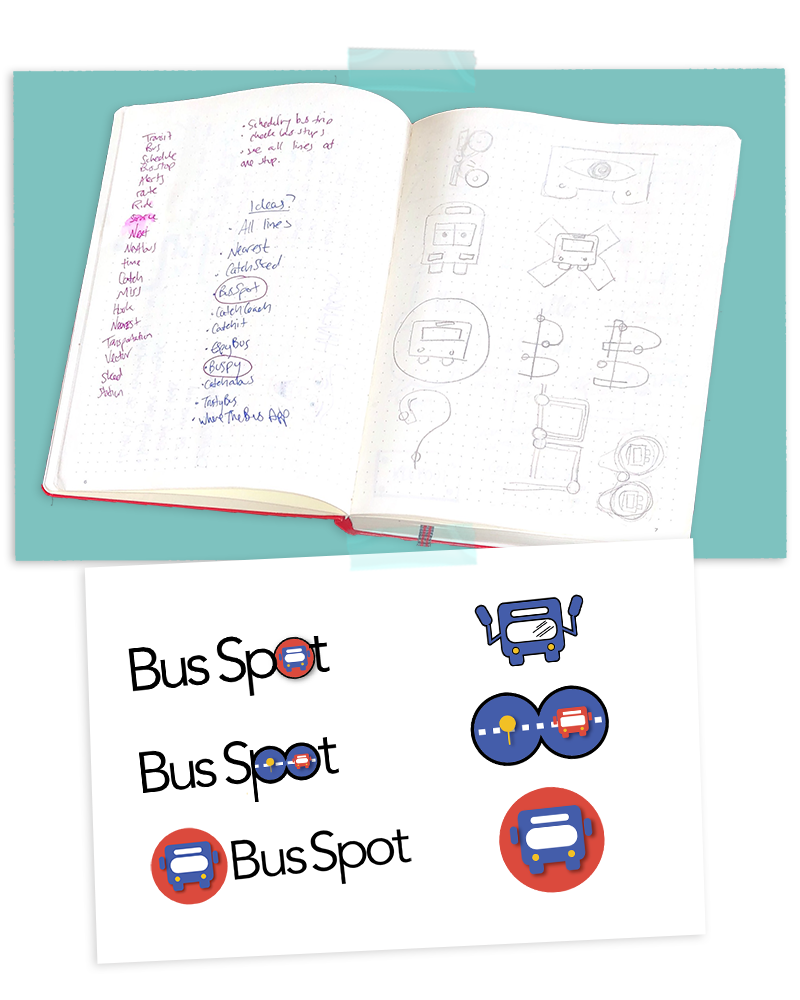 Transit
Bus
Schedule
Bus stop
Alerts
route
Ride
Space
Next
Nextbus
time
Catch
Miss
Hook
Nearest
Transportation
Vector
sked
station
• Scheduling bus trip
• check bus stops
• see all lines at
one stop.
Ideas?
• All lines
• Nearest
• CatchSked
• BusSpot
• CatchCoach
• Catchit
• EspyBus
• Buspy
• Catchabus
• TastyBus
• WhereTheBus App
Bus Spot
Bus Spot
Bus Spot